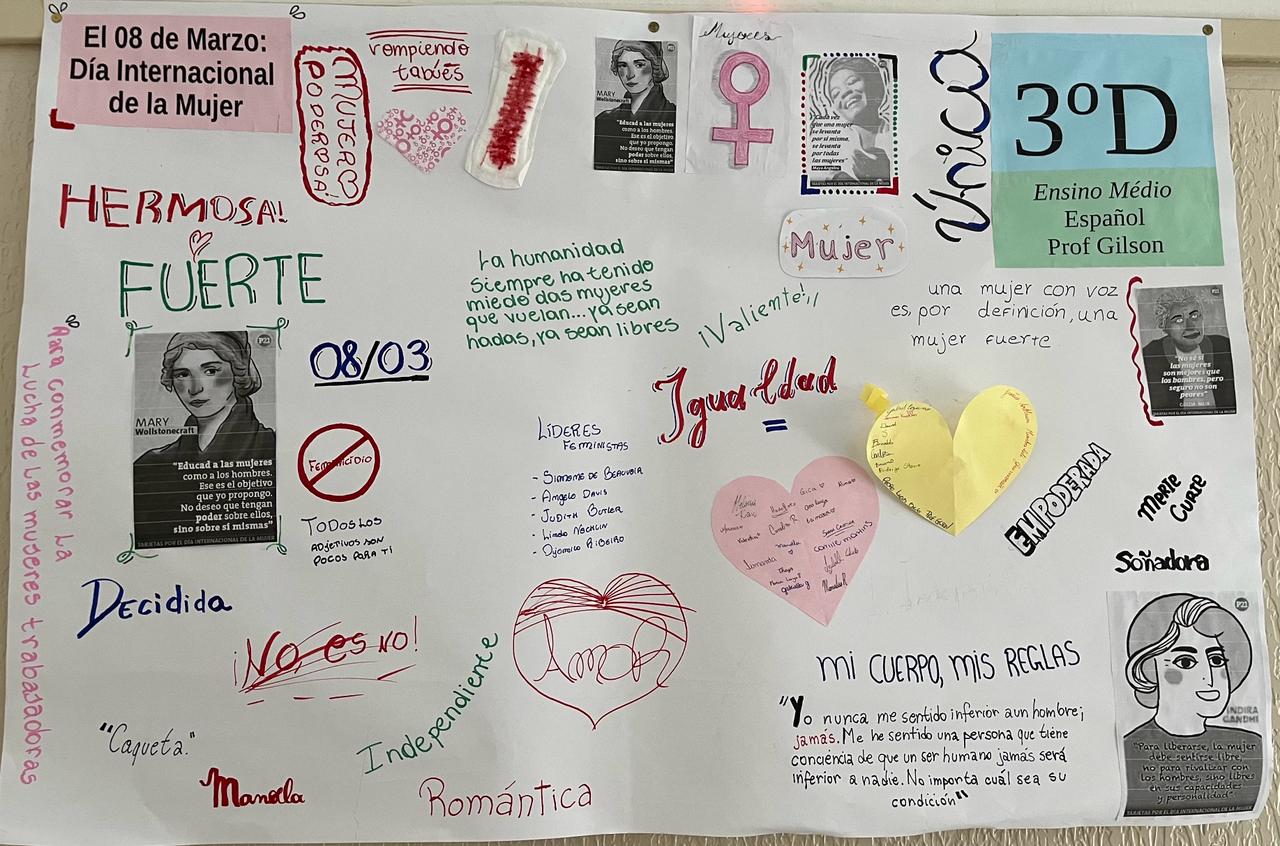 El 08 de Marzo:
Día Internacional
de la Mujer
¡MUJER
PODEROSA!
rompiendo
tabúes
MARY
Wollstonecraft
"Educad a las mujeres
como a los hombres.
Ese es el objetivo
que yo propongo.
No deseo que tengan
poder sobre ellos,
sino sobre sí mismas"
Mujeres
Cada vez
que una mujer
se levanta
por sí misma,
se levanta
por todas
las mujeres"
Maya Angelou
TARJETAS POR EL DÍA INTERNACIONAL DE LA MUJER
Única
3ºD
Ensino Médio
Español
Prof Gilson
HERMOSA!
FUERTE
Mujer
La humanidad
siempre ha tenido
miedo das mujeres
que vuelan... ya sean
hadas, ya sean libres
¡Valiente!
una mujer con voz
es, por definición, una
mujer fuerte
P21
"No sé si
las mujeres
son mejores que
los hombres, pero
seguro no son
peores"
Para conmemorar la
Lucha de las mujeres trabajadoras
P21
MARY
Wollstonecraft
"Educad a las mujeres
como a los hombres.
Ese es el objetivo
que yo propongo.
No deseo que tengan
poder sobre ellos,
sino sobre sí mismas"
TARJETAS POR EL DÍA INTERNACIONAL DE LA MUJER
08/03
Feminicidio
TODOS LOS
ADJETIVOS SON
POCOS PARA TÍ
Igualdad
=
LÍDERES
FEMINISTAS
- SIMONE DE BEAUVOIR
- ANGELA DAVIS
- JUDITH BUTLER
- LINDA NOCHLIN
- DJAMILA RIBEIRO
EMPODERADA
MARIE
CURIE
Soñadora
Decidida
¡No es NO!
AMOR
Independiente
"Caqueta."
Manoela
Romántica
MI CUERPO, MIS REGLAS
"Yo nunca me sentido inferior a un hombre;
jamás. Me he sentido una persona que tiene
conciencia de que un ser humano jamás será
inferior a nadie. No importa cuál sea su
condición"
P21
INDIRA
GANDHI
"Para liberarse, la mujer
debe sentirse libre,
no para rivalizar con
los hombres, sino libres
en sus capacidades
y personalidad"
TARJETAS POR EL DÍA INTERNACIONAL DE LA MUJER